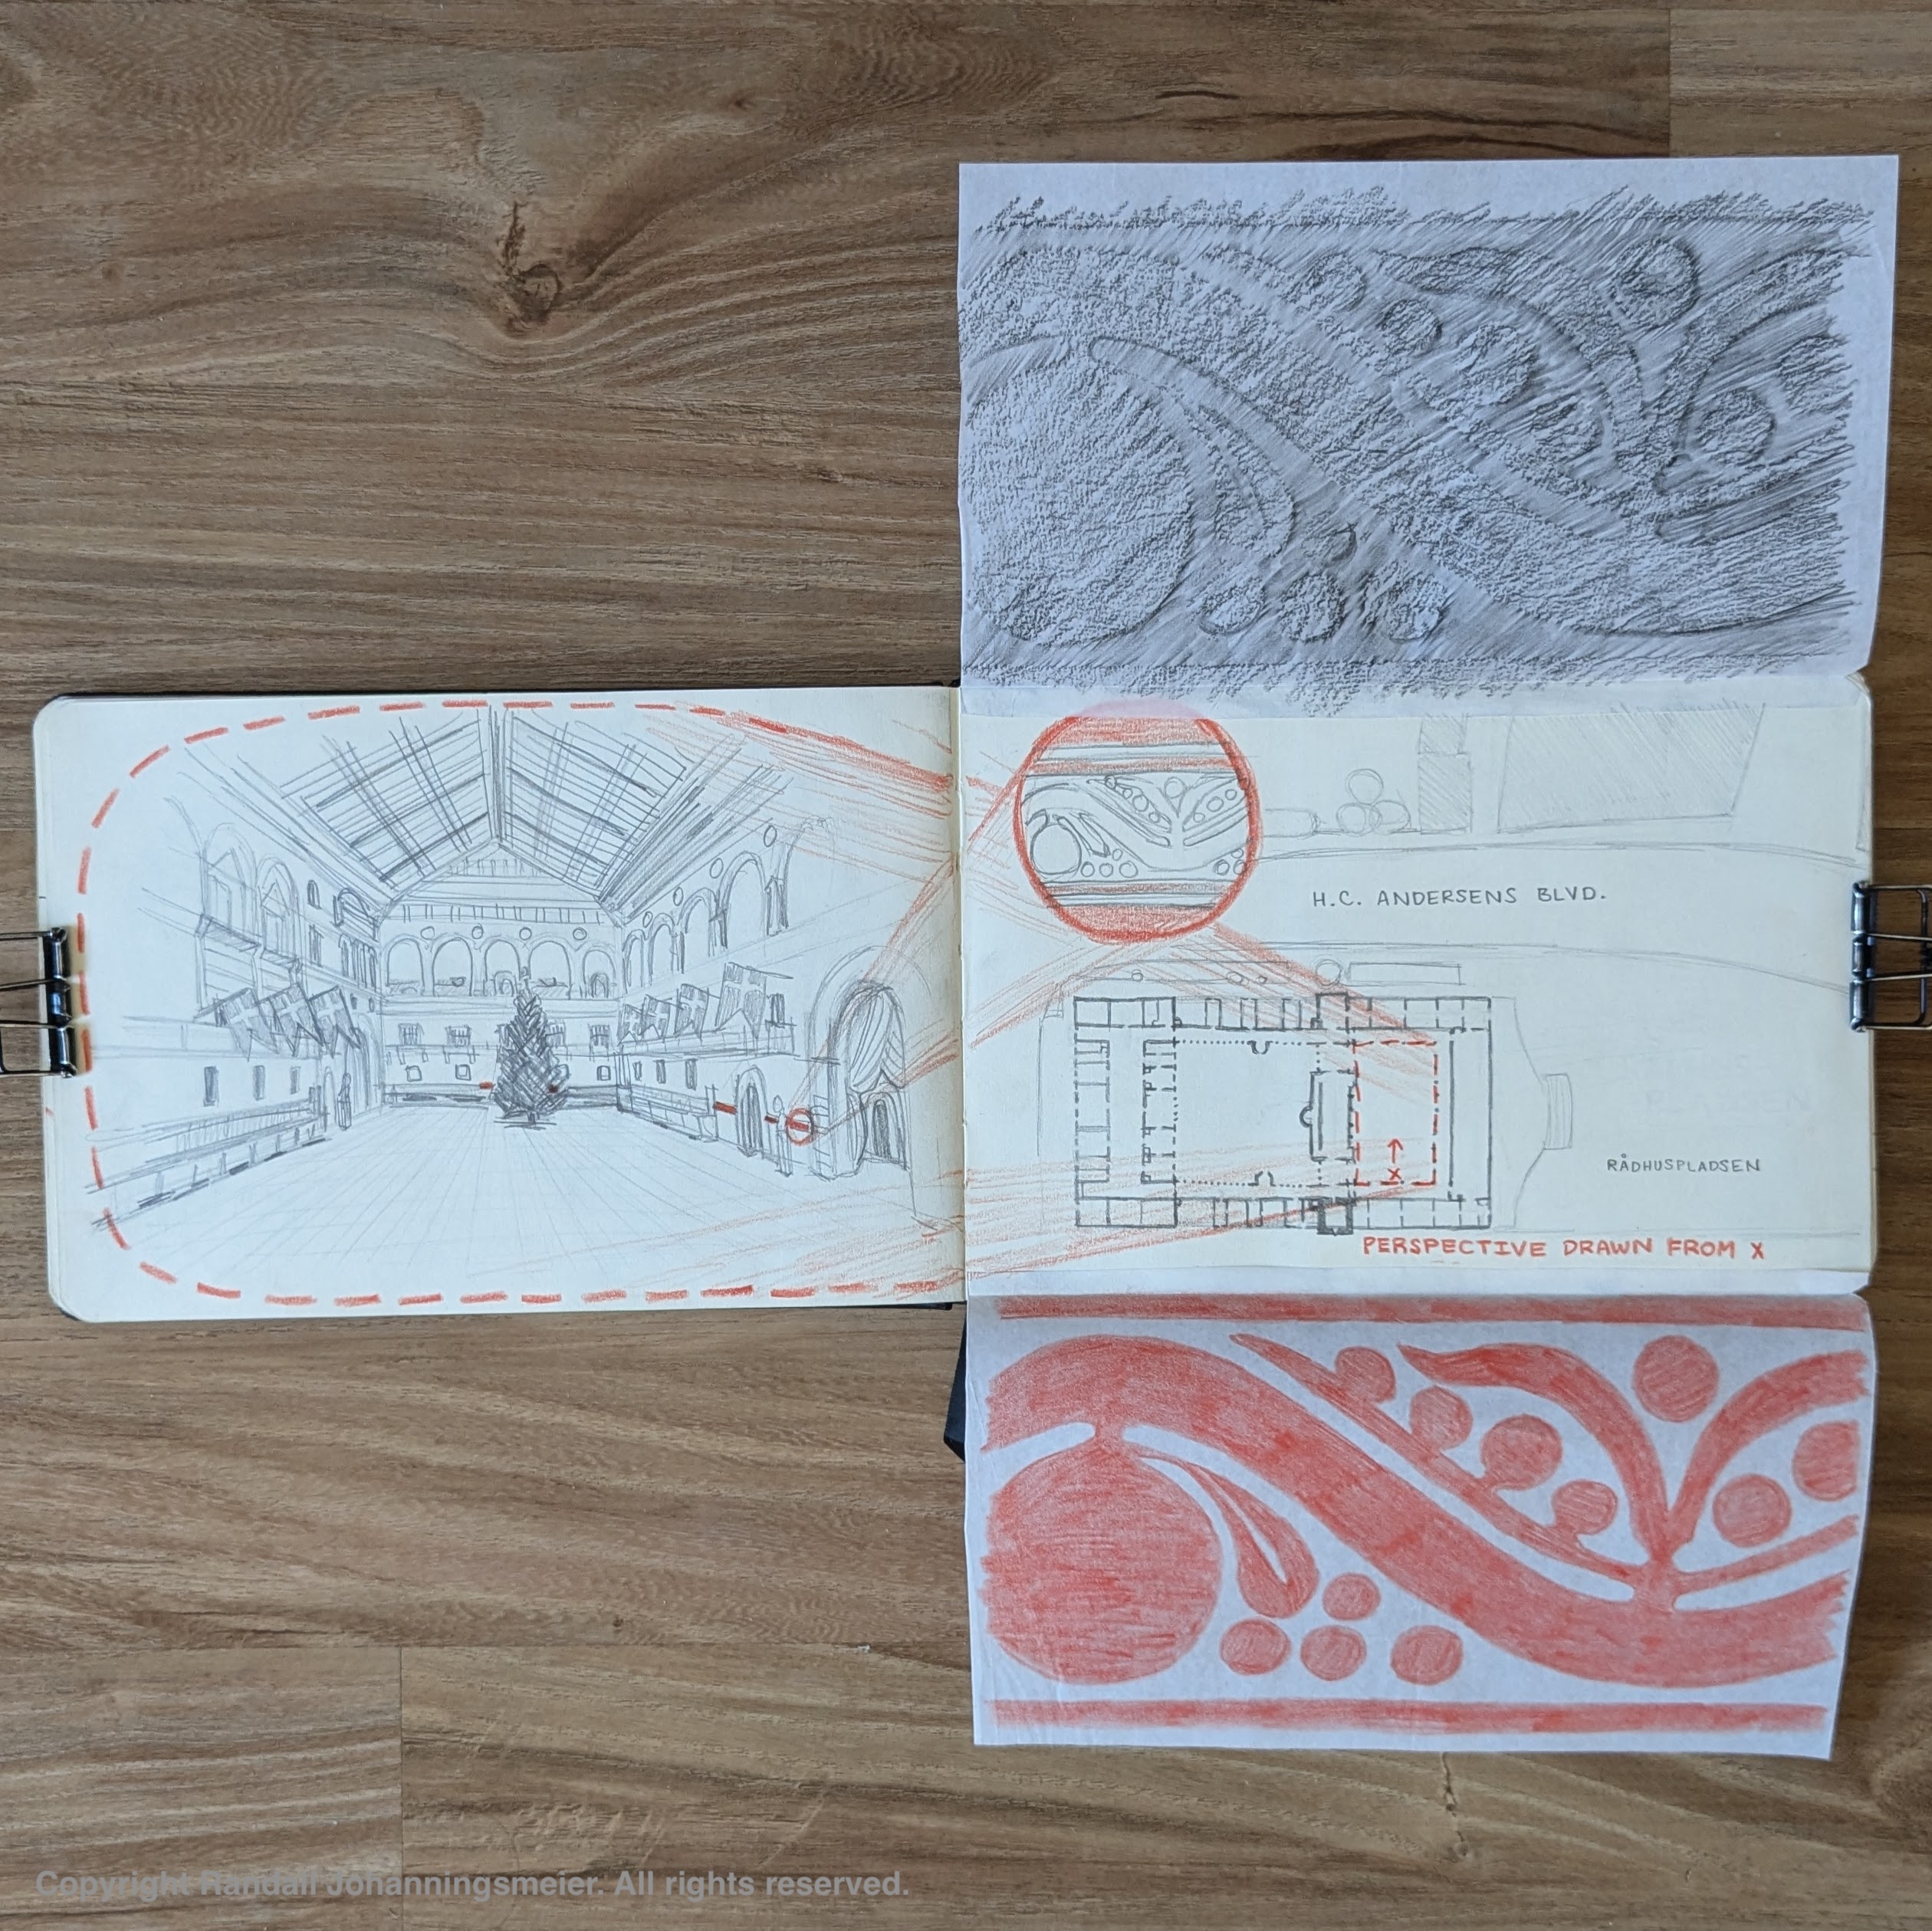 H.C. ANDERSENS BLVD.
RÅDHUSPLADSEN
X
PERSPECTIVE DRAWN FROM X
Copyright Randall Johanningsmeier. All rights reserved.